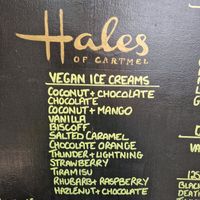 Hales
OF CARTMEL
VEGAN ICE CREAMS
COCONUT + CHOCOLATE
CHOCOLATE
COCONUT + MANGO
VANILLA
BISCOFF
SALTED CARAMEL
CHOCOLATE ORANGE
THUNDER + LIGHTNING
STRAWBERRY
TIRAMISU
RHUBARB + RASPBERRY
HAZELNUT + CHOCOLATE